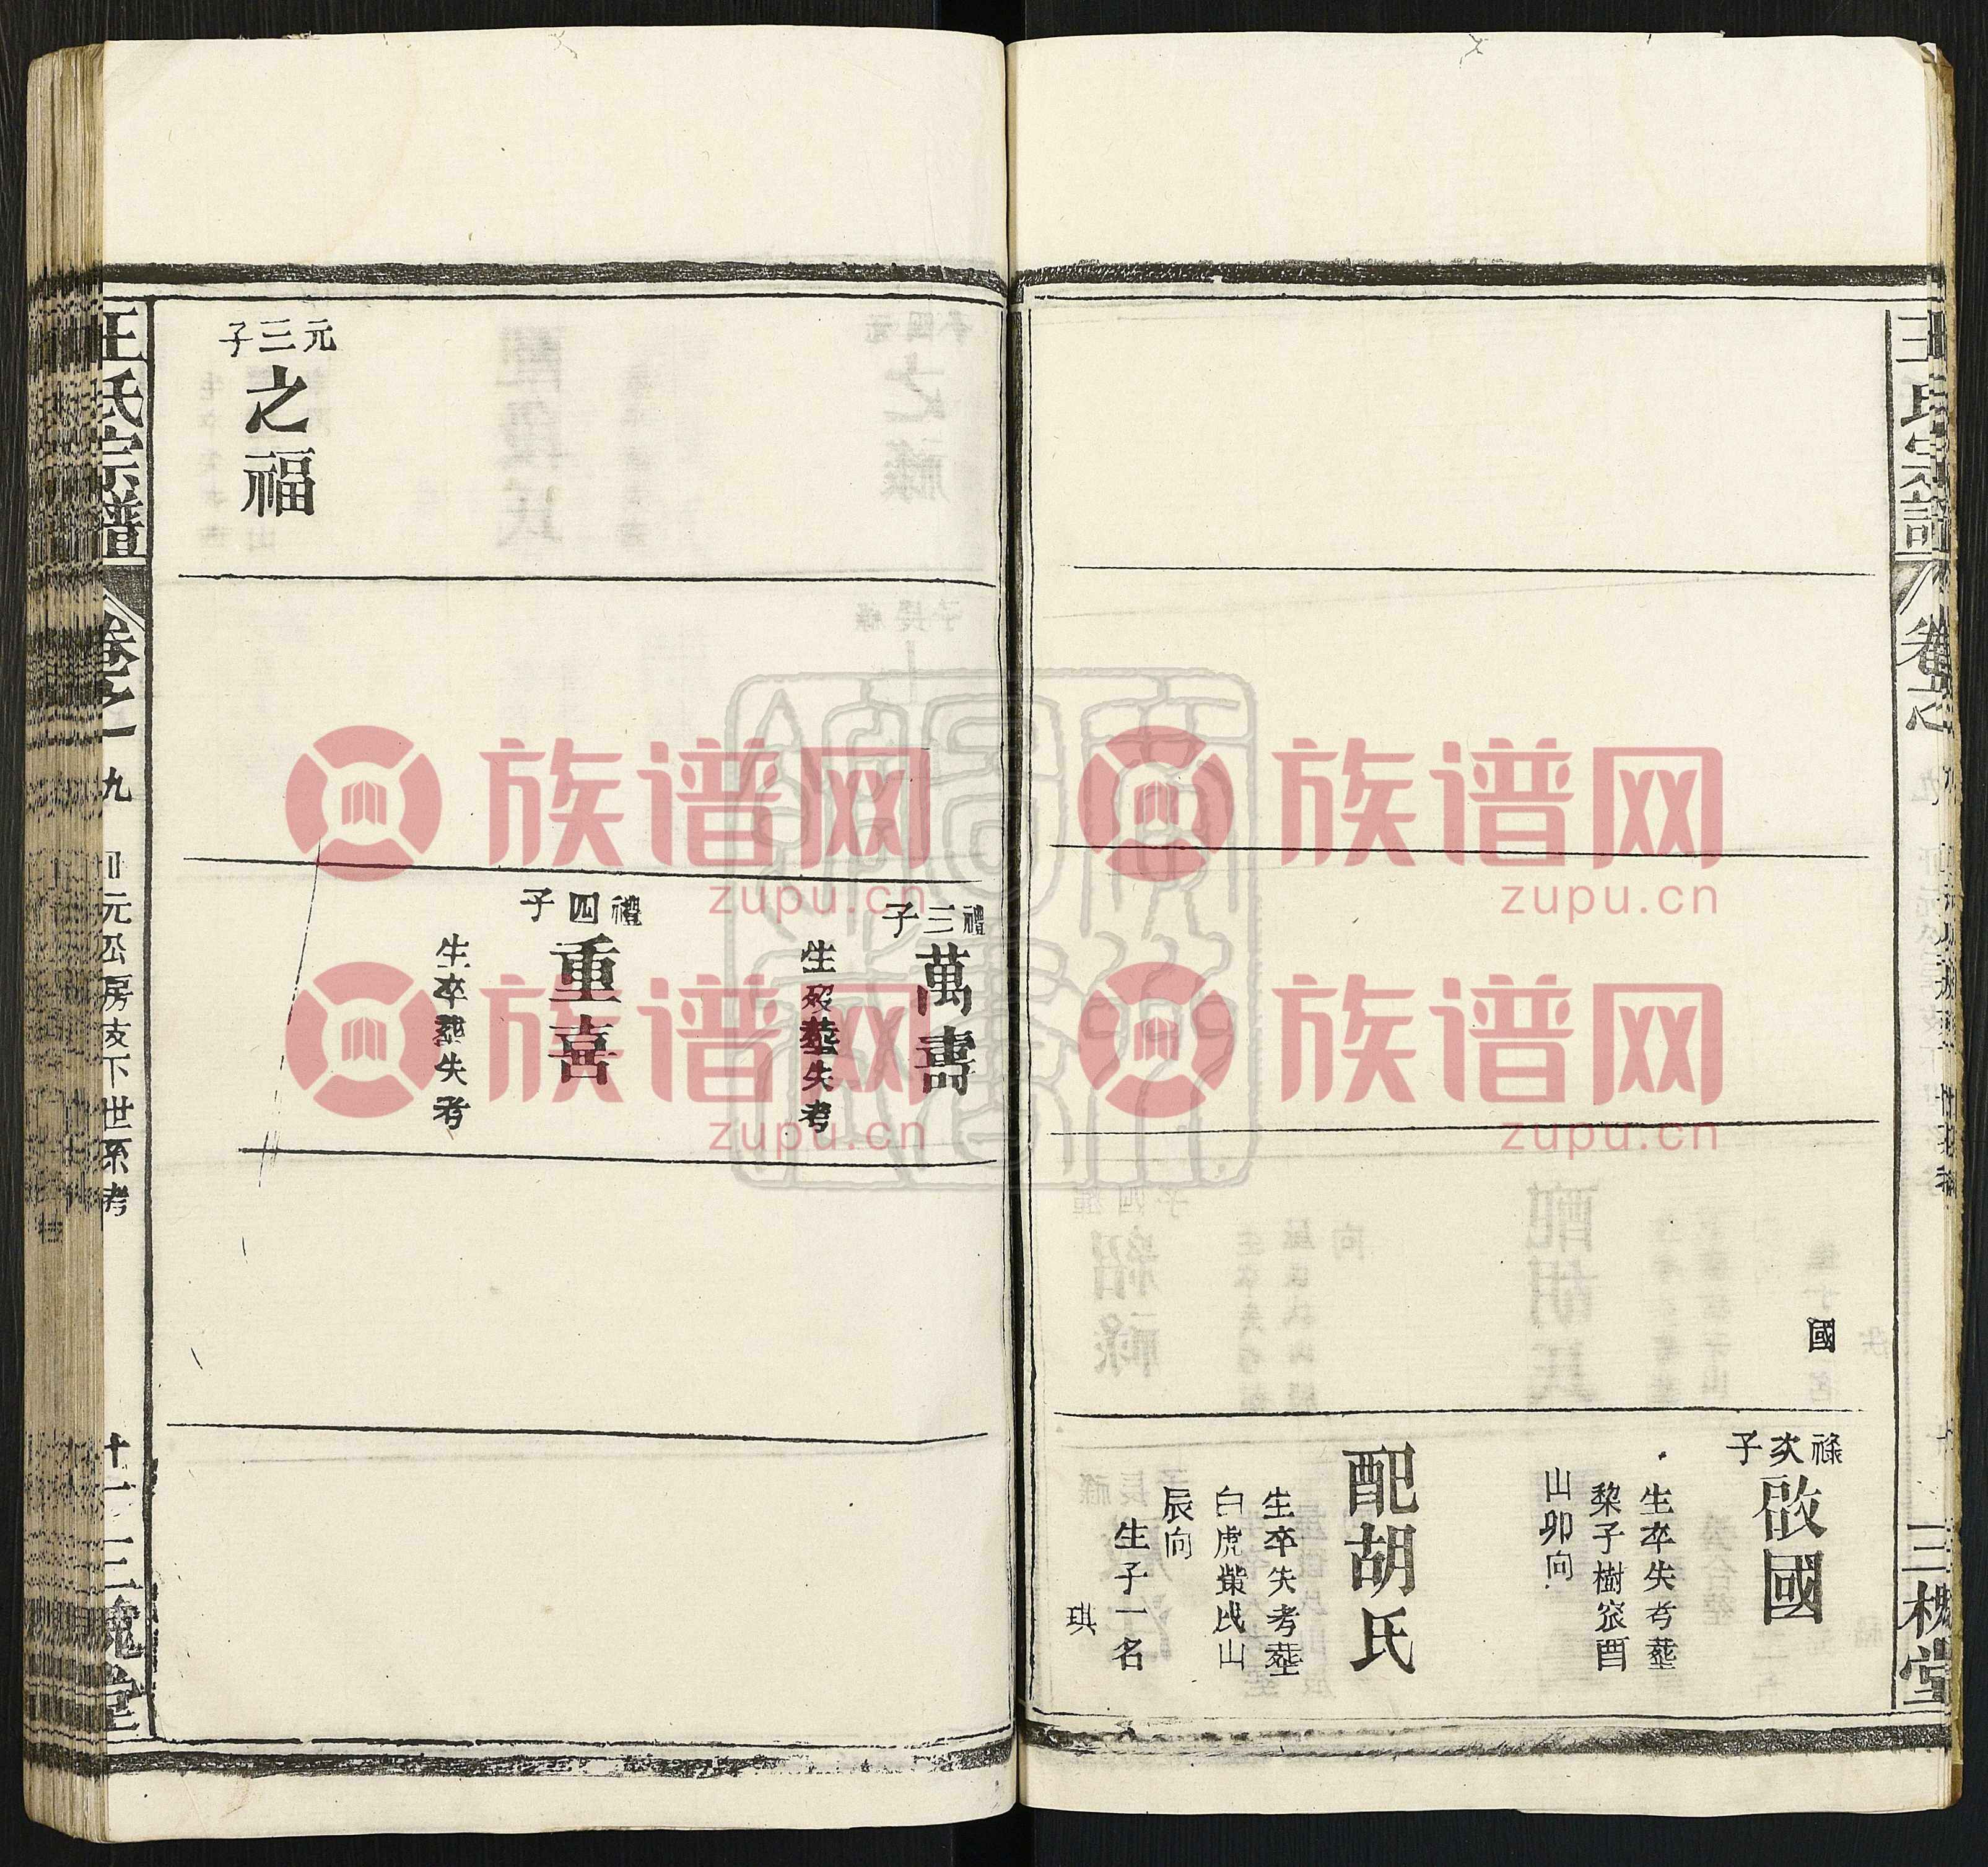 王氏宗譜
卷之
三槐堂
國
祿次子
啟國
生卒失考葬
黎子樹窊酉
山卯向
配胡氏
生卒失考葬
白虎塋戌山
辰向
生子一名
琪
禮三子
萬壽
生歿葬失考
禮四子
重喜
生卒葬失考
元三子
之福
王氏宗譜
卷之一
九
元公房支下世系考
十一
三槐堂
族谱网
zupu.cn
族谱网
zupu.cn
族谱网
zupu.cn
族谱网
zupu.cn